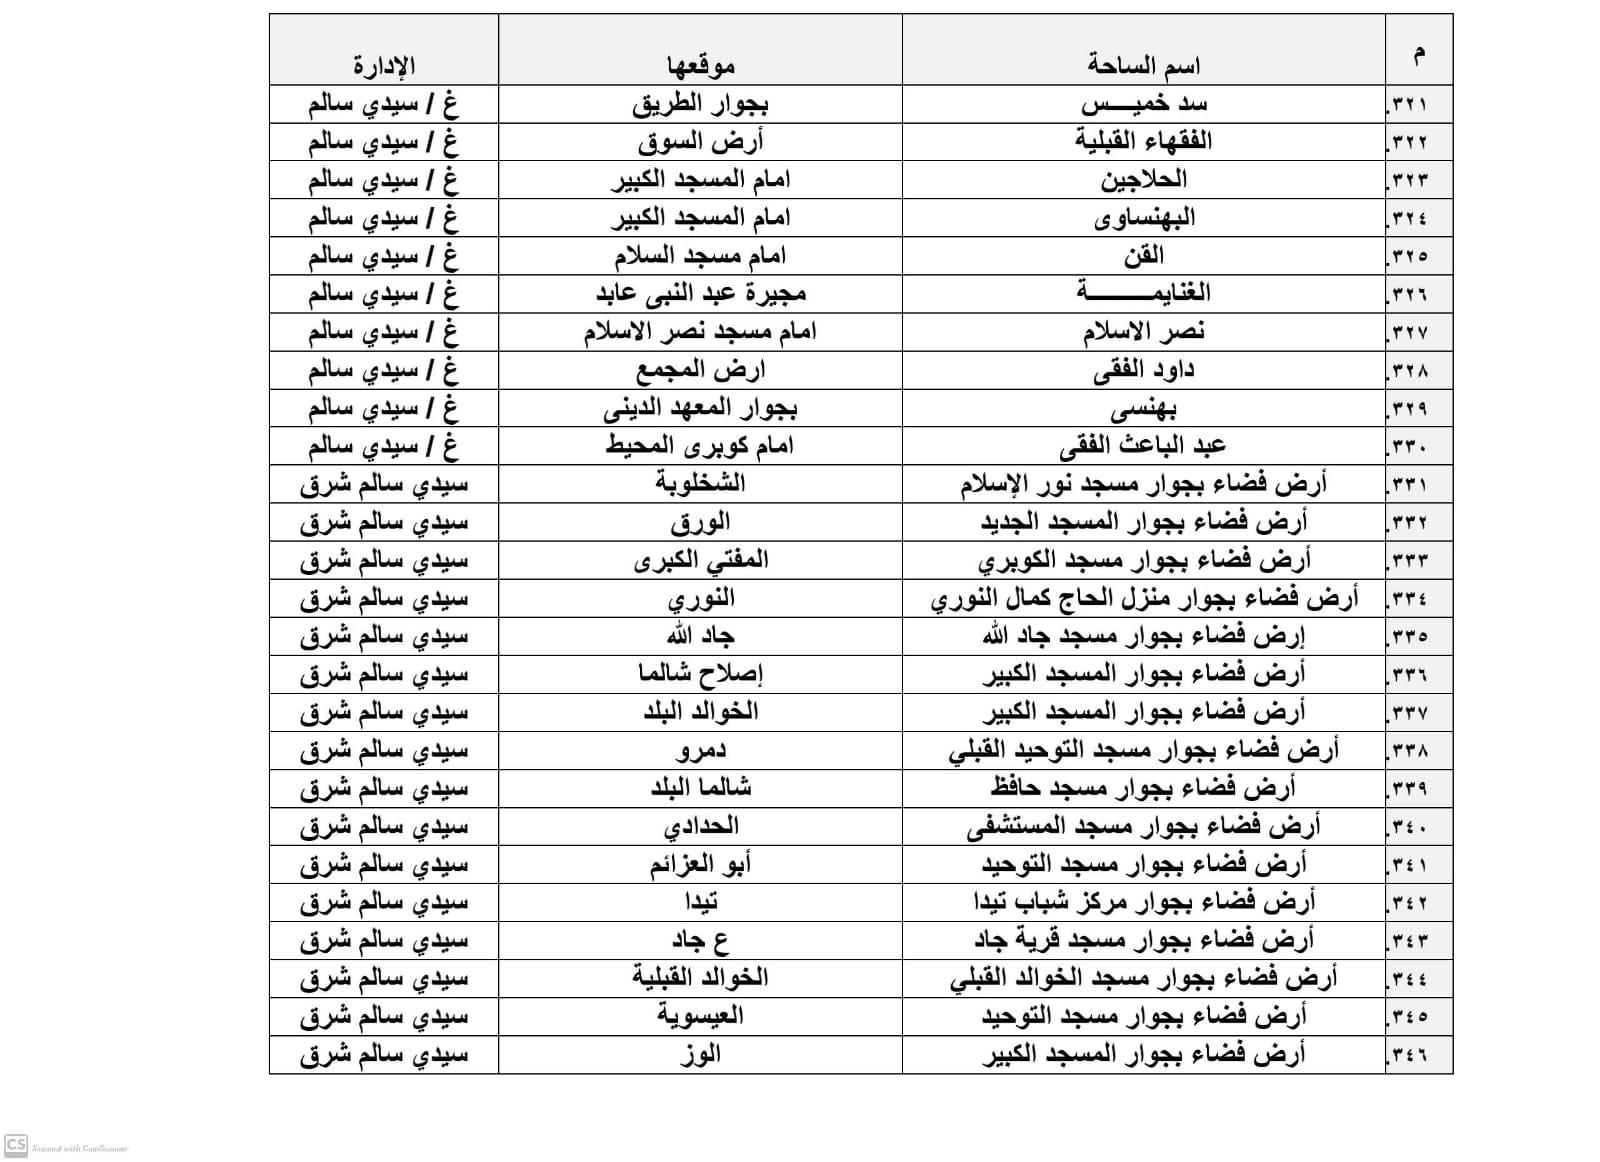 م اسم الساحة موقعها الإدارة
٣٢١. سد خميـــس بجوار الطريق غ / سيدي سالم
٣٢٢. الفقهاء القبلية أرض السوق غ / سيدي سالم
٣٢٣. الحلاجين امام المسجد الكبير غ / سيدي سالم
٣٢٤. البهنساوى امام المسجد الكبير غ / سيدي سالم
٣٢٥. القن امام مسجد السلام غ / سيدي سالم
٣٢٦. الغنايمــــــــة مجيرة عبد النبى عابد غ / سيدي سالم
٣٢٧. نصر الاسلام امام مسجد نصر الاسلام غ / سيدي سالم
٣٢٨. داود الفقى ارض المجمع غ / سيدي سالم
٣٢٩. بهنسى بجوار المعهد الدينى غ / سيدي سالم
٣٣٠. عبد الباعث الفقى امام كوبرى المحيط غ / سيدي سالم
٣٣١. أرض فضاء بجوار مسجد نور الإسلام الشخلوبة سيدي سالم شرق
٣٣٢. أرض فضاء بجوار المسجد الجديد الورق سيدي سالم شرق
٣٣٣. أرض فضاء بجوار مسجد الكوبري المفتي الكبرى سيدي سالم شرق
٣٣٤. أرض فضاء بجوار منزل الحاج كمال النوري النوري سيدي سالم شرق
٣٣٥. إرض فضاء بجوار مسجد جاد الله جاد الله سيدي سالم شرق
٣٣٦. أرض فضاء بجوار المسجد الكبير إصلاح شالما سيدي سالم شرق
٣٣٧. أرض فضاء بجوار المسجد الكبير الخوالد البلد سيدي سالم شرق
٣٣٨. أرض فضاء بجوار مسجد التوحيد القبلي دمرو سيدي سالم شرق
٣٣٩. أرض فضاء بجوار مسجد حافظ شالما البلد سيدي سالم شرق
٣٤٠. أرض فضاء بجوار مسجد المستشفى الحدادي سيدي سالم شرق
٣٤١. أرض فضاء بجوار مسجد التوحيد أبو العزائم سيدي سالم شرق
٣٤٢. أرض فضاء بجوار مركز شباب تيدا تيدا سيدي سالم شرق
٣٤٣. أرض فضاء بجوار مسجد قرية جاد ع جاد سيدي سالم شرق
٣٤٤. أرض فضاء بجوار مسجد الخوالد القبلي الخوالد القبلية سيدي سالم شرق
٣٤٥. أرض فضاء بجوار مسجد التوحيد العيسوية سيدي سالم شرق
٣٤٦. أرض فضاء بجوار المسجد الكبير الوز سيدي سالم شرق
CS Scanned with CamScanner